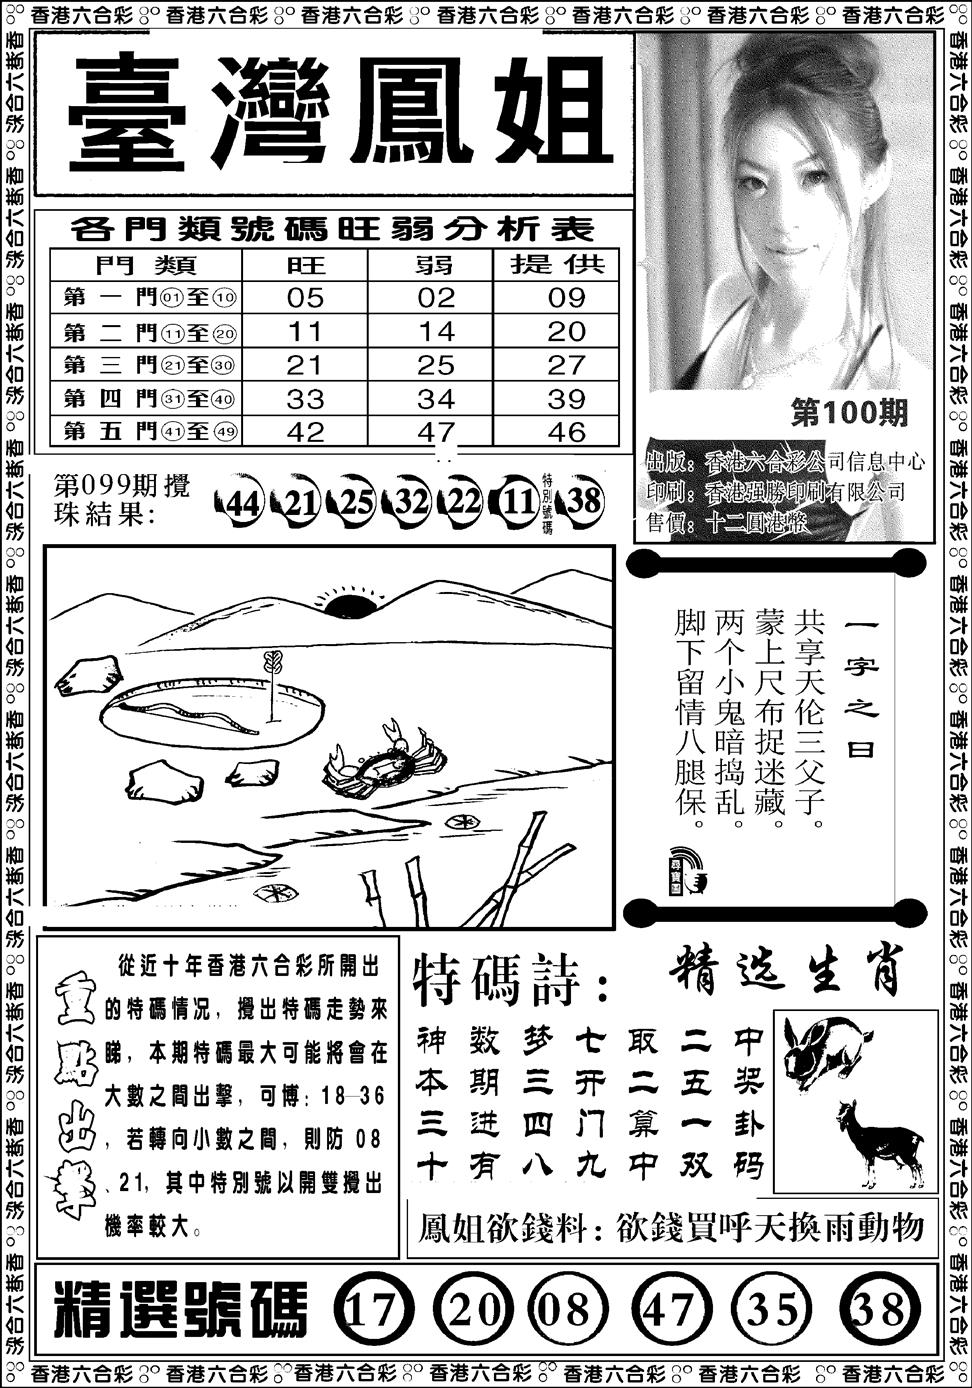 香港六合彩 香港六合彩 香港六合彩 香港六合彩 香港六合彩 香港六合彩 香港六合彩
臺灣鳳姐
各門類號碼旺弱分析表
門類 旺 弱 提供
第一門01至10 05 02 09
第二門11至20 11 14 20
第三門21至30 21 25 27
第四門31至40 33 34 39
第五門41至49 42 47 46
第099期攪
珠結果:
44 21 25 32 22 11 特別號碼 38
第100期
出版：香港六合彩公司信息中心
印刷：香港强勝印刷有限公司
售價：十二圓港幣
一字之曰
共享天伦三父子。
蒙上尺布捉迷藏。
两个小鬼暗捣乱。
脚下留情八腿保。
尋寶圖
重點出擊
從近十年香港六合彩所開出
的特碼情况，攪出特碼走勢來
睇，本期特碼最大可能將會在
大數之間出擊，可博：18—36
，若轉向小數之間，則防 08
、21，其中特別號以開雙攪出
機率較大。
特碼詩：
神数梦七取二中
本期三开二五奖
三进四门算一卦
十有八九中双码
精选生肖
鳳姐欲錢料：欲錢買呼天換雨動物
精選號碼 17 20 08 47 35 38
香港六合彩 香港六合彩 香港六合彩 香港六合彩 香港六合彩 香港六合彩 香港六合彩